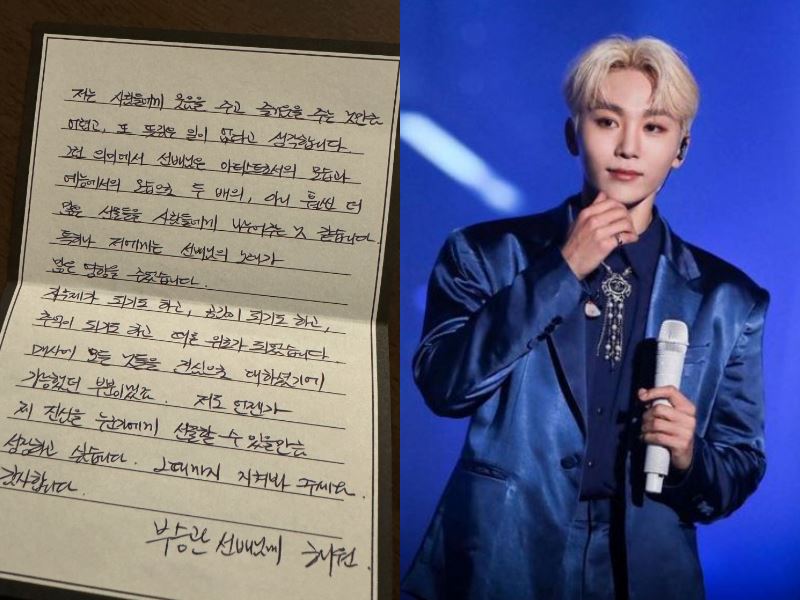 저는 사람들에게 웃음을 주고 즐거움을 주는 것만큼
어렵고, 또 뜻깊은 일이 없다고 생각합니다.
그런 의미에서 선배님은 아티스트로서의 모습과
예능에서의 모습으로 두 배의, 아니 훨씬 더
많은 선물들을 사람들에게 나누어주는 것 같습니다.
특히나 저에게는 선배님의 노래가
많은 영향을 주었습니다.
되기도 하고, 공감이 되기도 하고,
추억이 되기도 하고 여러 위로가 되었습니다
매사에 모든 것들을 진심으로 대하셨기에
가능했던 부분이겠죠. 저도 언젠가
제 진심을 누군가에게 선물할 수 있을만큼
성장하고 싶습니다. 그때까지 지켜봐 주세요.
감사합니다.
부승관 선배님께